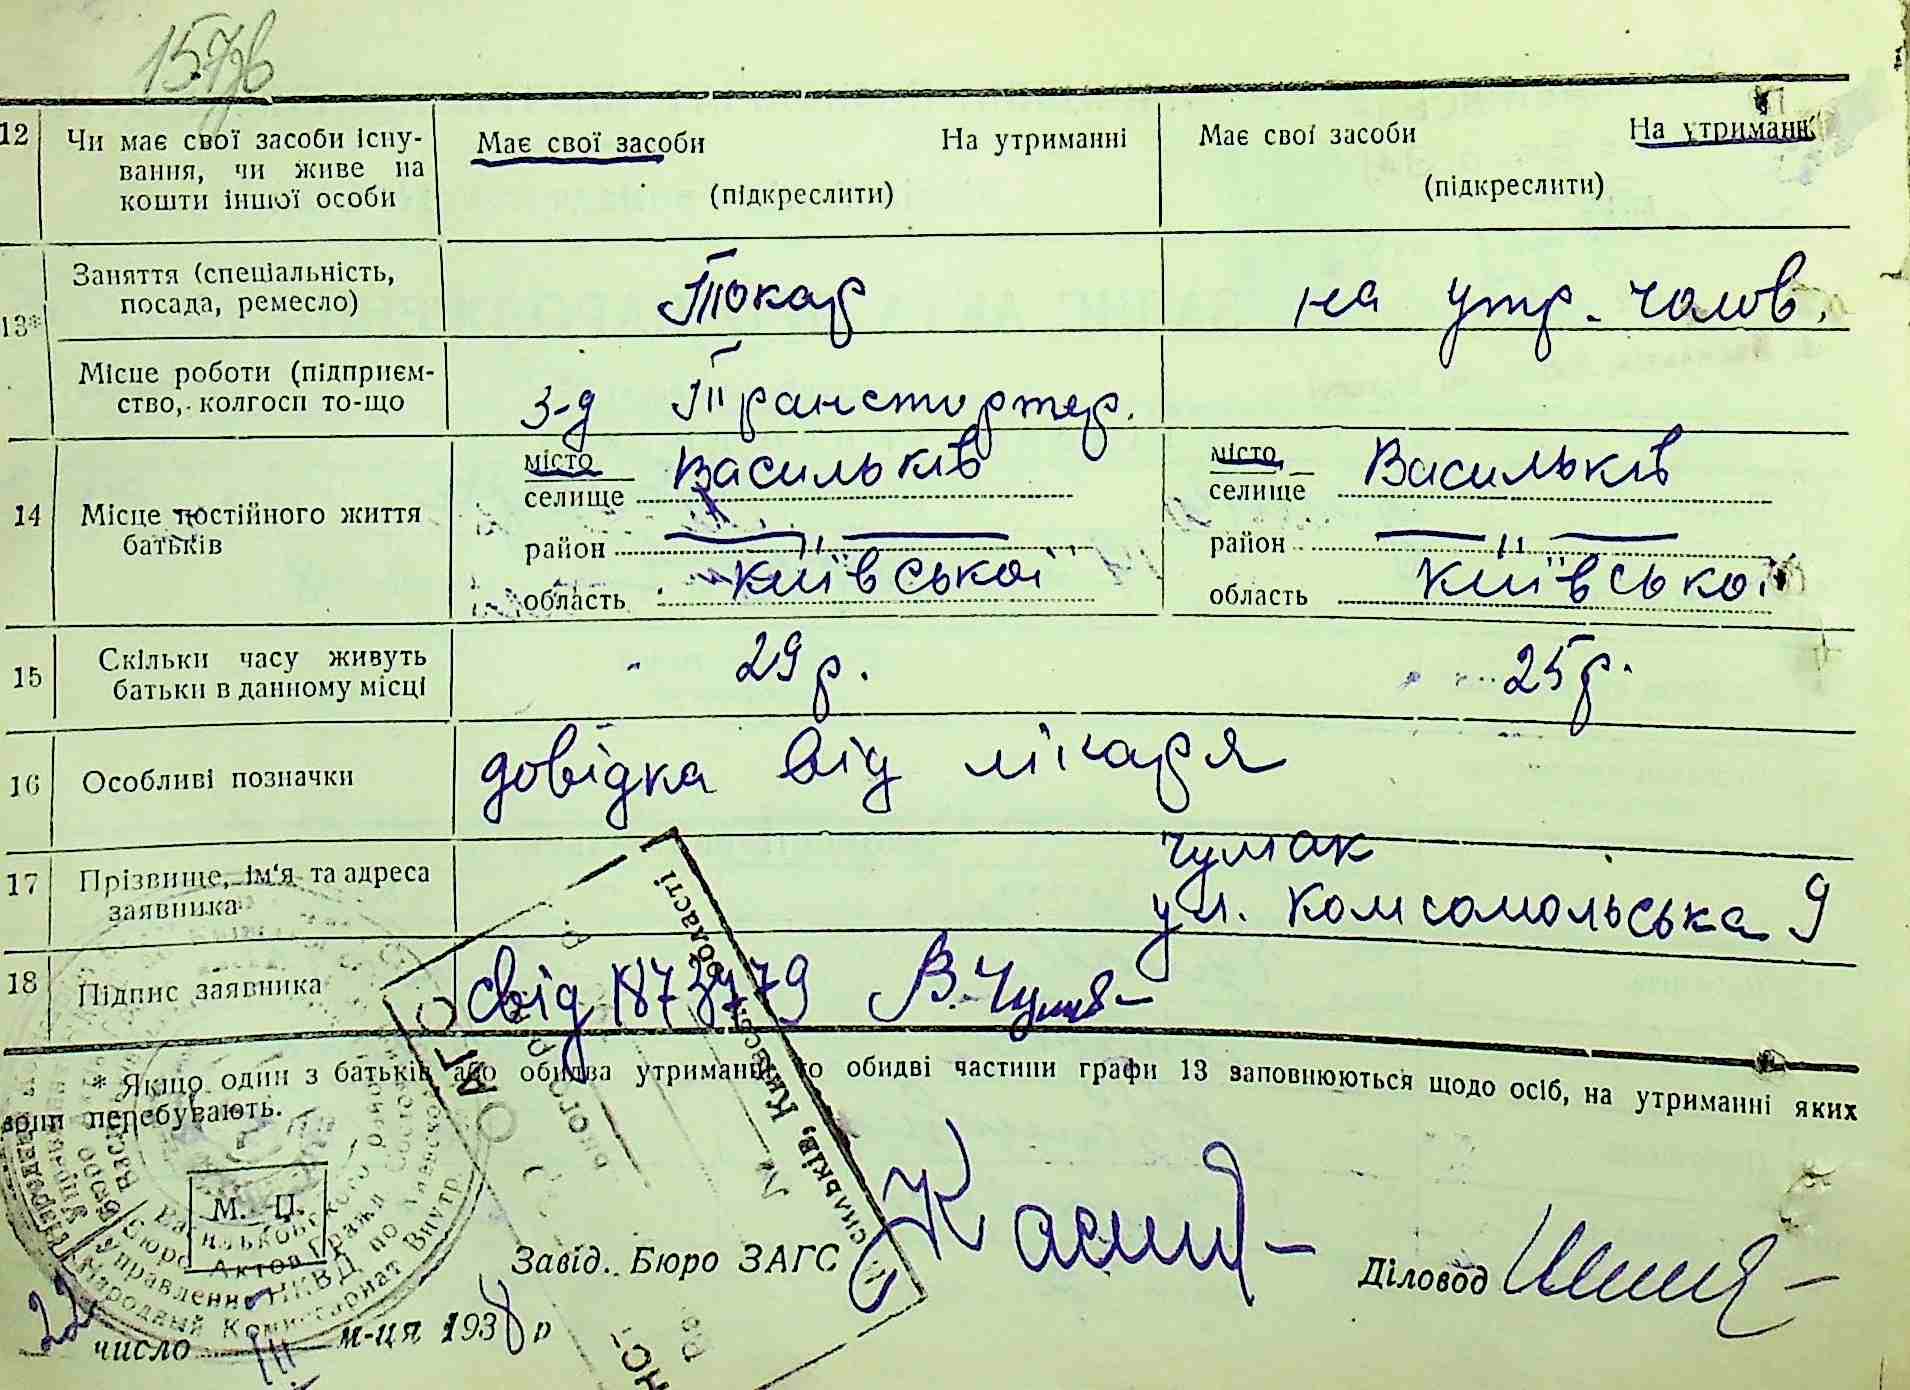 157зв
12 Чи має свої засоби існу- Має свої засоби На утриманні Має свої засоби На утриманні
вання, чи живе на
кошти іншої особи (підкреслити) (підкреслити)
13* Заняття (спеціальність, Токар на утр. чолов.
посада, ремесло)
Місце роботи (підприєм- з-д Транспортер.
ство, колгосп то-що
14 Місце постійного життя місто Васильків місто Васильків
батьків селище селище
район — „ — район — „ —
область Київської область Київської
15 Скільки часу живуть 29 р. 25 р.
батьки в данному місці
16 Особливі позначки довідка від лікаря
17 Прізвище, ім'я та адреса Чумак
заявника ул. Комсомольська 9
18 Підпис заявника свід В. Чумак
* Якщо один з батьків або обидва утриманці, то обидві частини графи 13 заповнюються щодо осіб, на утриманні яких
вони перебувають.
М. П.
Васильковского
Бюро Актов Гражд. Состоян.
Управление НКВД по Киевской
Народный Комиссариат Внутр.
Васильків, Київської області
Завід. Бюро ЗАГС Діловод
22 число III м-ця 1938 р